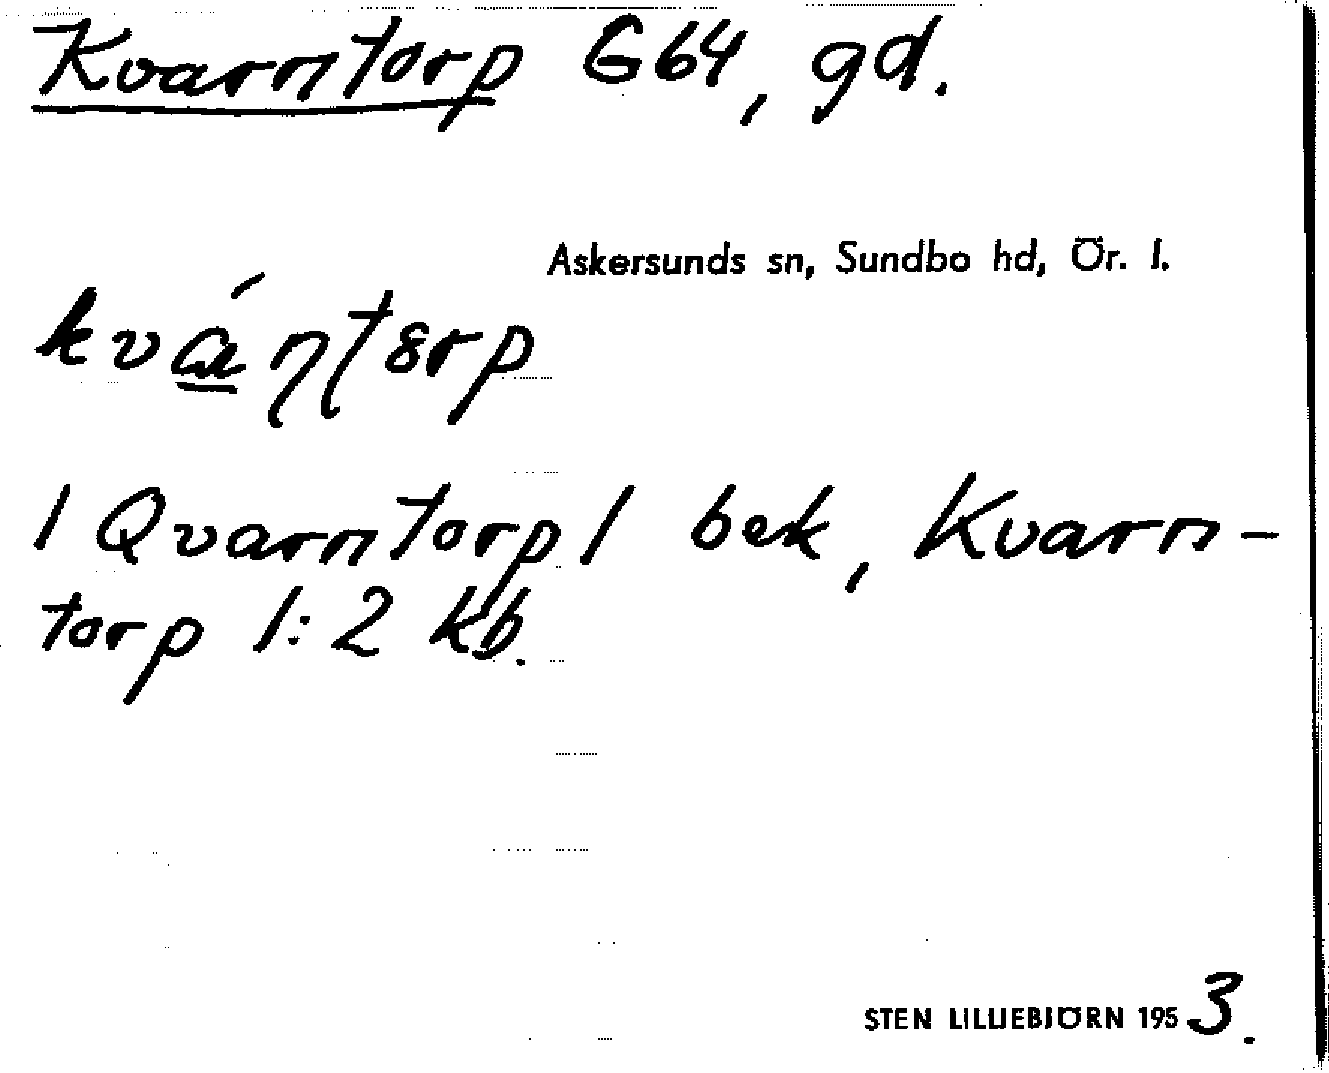 Kvarntorp G64, gd.
Askersunds sn, Sundbo hd, Ör. l.
kvá̳ɳʈ8rp
/Qvarntorp/ bek, Kvarn-
torp 1:2 kb.
STEN LILLIEBJÖRN 1953.